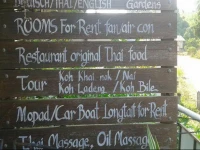 DEUTSCH/THAI/ENGLISH
Gardens
ROOMS For Rent fan/air con
Restaurant original Thai food
Tour Koh Khai nok / Nai
Koh Ladeng / Koh Bile
Mopad/Car Boat Longtail for Rent
Thai Massage, Oil Massage